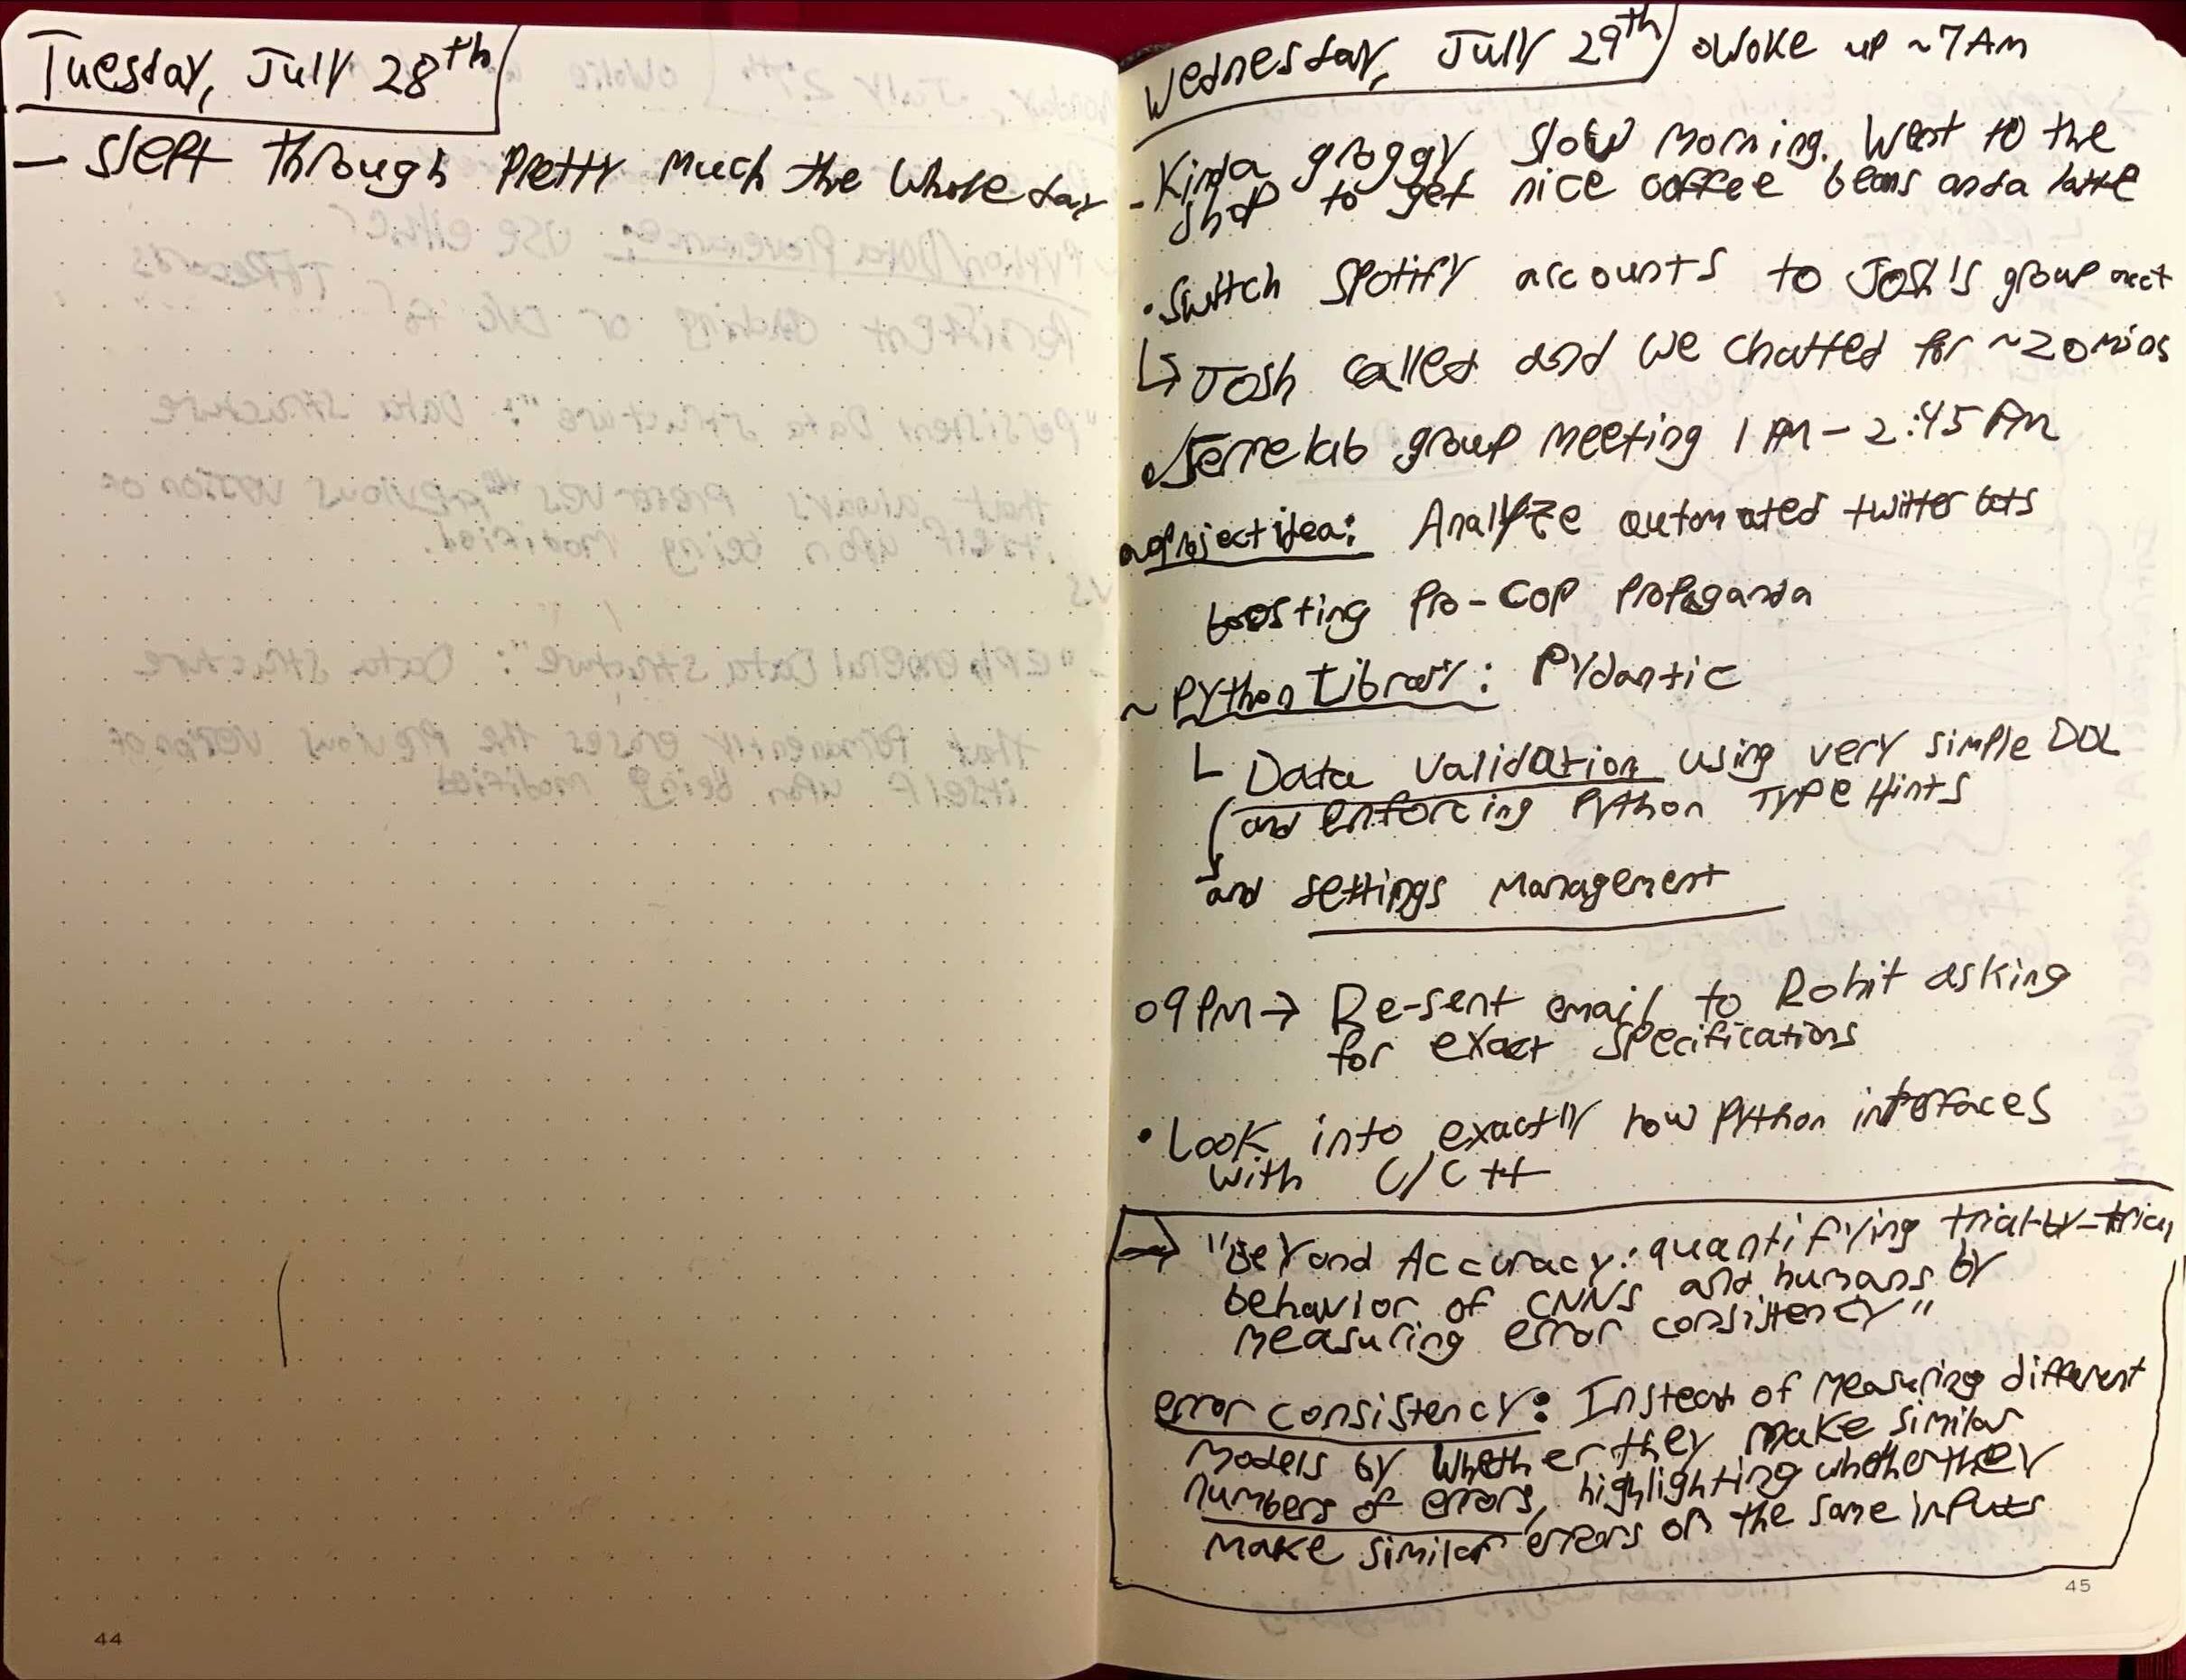 Tuesday, July 28th
- slept through pretty much the whole day
44
Wednesday, July 29th o woke up ~7 AM
- Kinda groggy, slow morning. Went to the
shop to get nice coffee beans and a latte
• Switch Spotify accounts to Josh's group acct
↳ Josh called and we chatted for ~20 mins
o Serre lab group meeting 1 PM - 2:45 PM
project idea: Analyze automated twitter bots
boosting pro-cop propaganda
~ Python Library: Pydantic
└ Data validation using very simple DDL
and enforcing Python Type Hints
and settings management
o 9 PM → Re-sent email to Rohit asking
for exact specifications
• Look into exactly how Python interfaces
with C/C++
→ "Beyond Accuracy: quantifying trial-by-trial
behavior of CNNs and humans by
measuring error consistency"
error consistency: Instead of measuring different
models by whether they make similar
numbers of errors, highlighting whether they
make similar errors on the same inputs
45